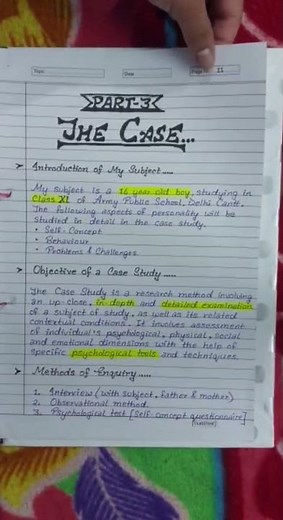 Date
Page No. 11
PART-3
THE CASE...
➤ Introduction of My Subject....
My subject is a 16 year old boy, studying in
Class XI of Army Public School, Delhi Cantt.
The following aspects of personality will be
studied in detail in the case study.
• Self-Concept
• Behaviour
• Problems & Challenges
➤ Objective of a Case Study.....
The Case Study is a research method involving
an up-close, in depth and detailed examination
of a subject of study, as well as its related
contextual conditions. It involves assessment
of individual's psychological, physical, social
and emotional dimensions with the help of
specific psychological tools and techniques.
➤ Methods of Enquiry.....
1. Interview (with subject, father & mother)
2. Observational method.
3. Psychological test [Self-concept questionnaire]